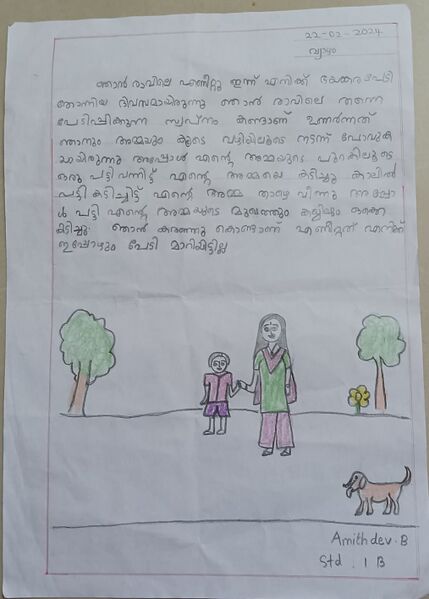 22-02-2024
വ്യാഴം
ഞാൻ രാവിലെ എണീറ്റു ഇന്ന് എനിക്ക് ഭയങ്കര പേടി
തോന്നിയ ദിവസമായിരുന്നു ഞാൻ രാവിലെ തന്നെ
പേടിപ്പിക്കുന്ന സ്വപ്നം കണ്ടാണ് ഉണർന്നത്
ഞാനും അമ്മയും കൂടെ വഴിയിലൂടെ നടന്ന് പോവുക
യായിരുന്നു അപ്പോൾ എന്റെ അമ്മയുടെ പുറകിലൂടെ
ഒരു പട്ടി വന്നിട്ട് എന്റെ അമ്മയെ കടിച്ചു കാലിൽ
പട്ടി കടിച്ചിട്ട് എന്റെ അമ്മ താഴെ വീന്നു അപ്പോ
ൾ പട്ടി എന്റെ അമ്മയുടെ മുഖത്തും കയ്യിലും ഒക്കെ
കടിച്ചു. ഞാൻ കരഞ്ഞു കൊണ്ടാണ് എണീറ്റത് എനിക്ക്
ഇപ്പോഴും പേടി മാറിയിട്ടില്ല
Amithdev.B
Std. I B